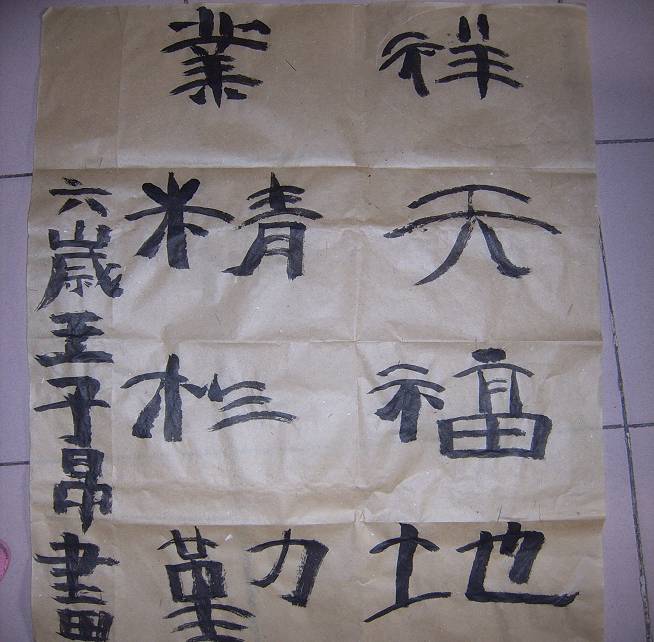 祥天福地
業精於勤
六歲王子昂畫